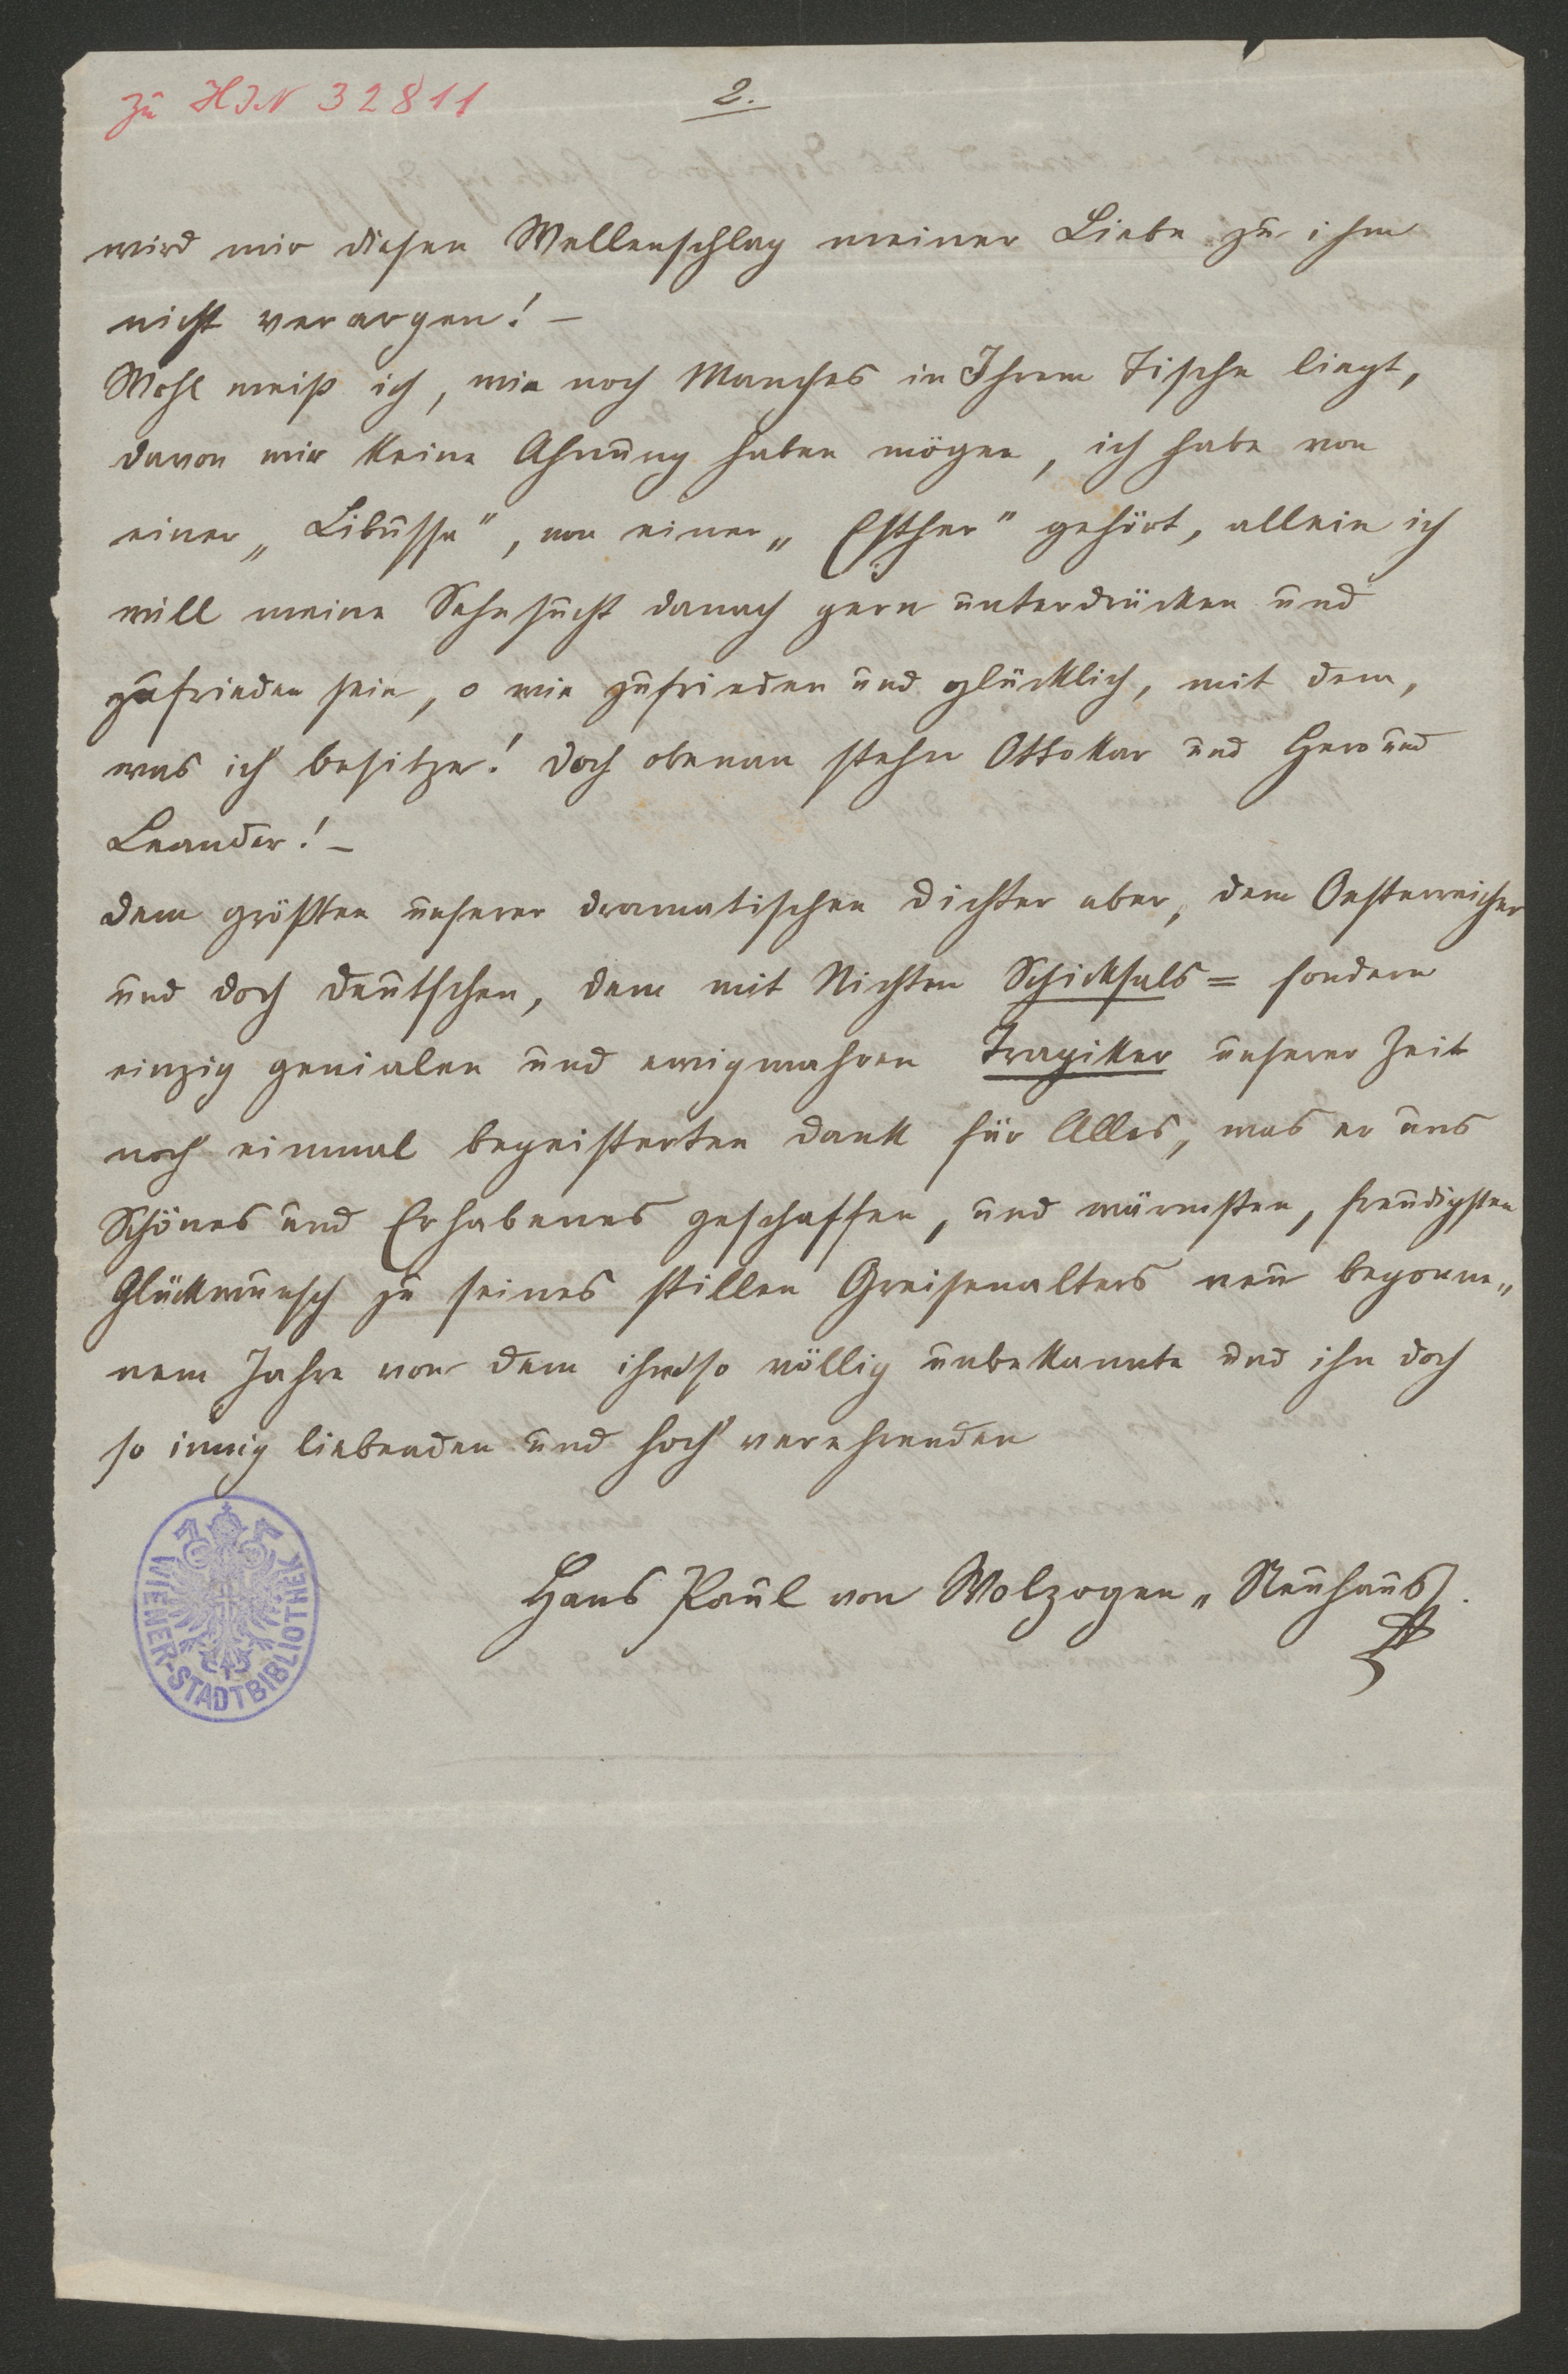 zu HIN 32811
2.
wird mir diesen Wellenschlag meiner Liebe zu ihm
nicht verargen! –
Wohl weiß ich, wie noch Manches in Ihrem Tische liegt,
davon wir keine Ahnung haben mögen, ich habe von
einer „Libussa", von einer „Esther" gehört, allein ich
will meine Sehnsucht danach gern unterdrücken und
zufrieden sein, o wie zufrieden und glücklich, mit dem,
was ich besitze! Doch obenan stehn Ottokar und Hero und
Leander! –
Dem größten unserer dramatischen Dichter aber, dem Oesterreicher
und doch Deutschen, dem mit Nichten Schicksals= sondern
einzig genialen und ewigwahren Tragiker unserer Zeit
noch einmal begeisterten Dank für Alles, was er uns
Schönes und Erhabenes geschaffen, und wärmsten, freudigsten
Glückwunsch zu seines stillen Greisenalters neu begonne„
nem Jahre von dem ihm so völlig unbekannte und ihn doch
so innig liebenden und hoch verehrenden
Hans Paul von Wolzogen „ Neuhaus.
WIENER-STADTBIBLIOTHEK